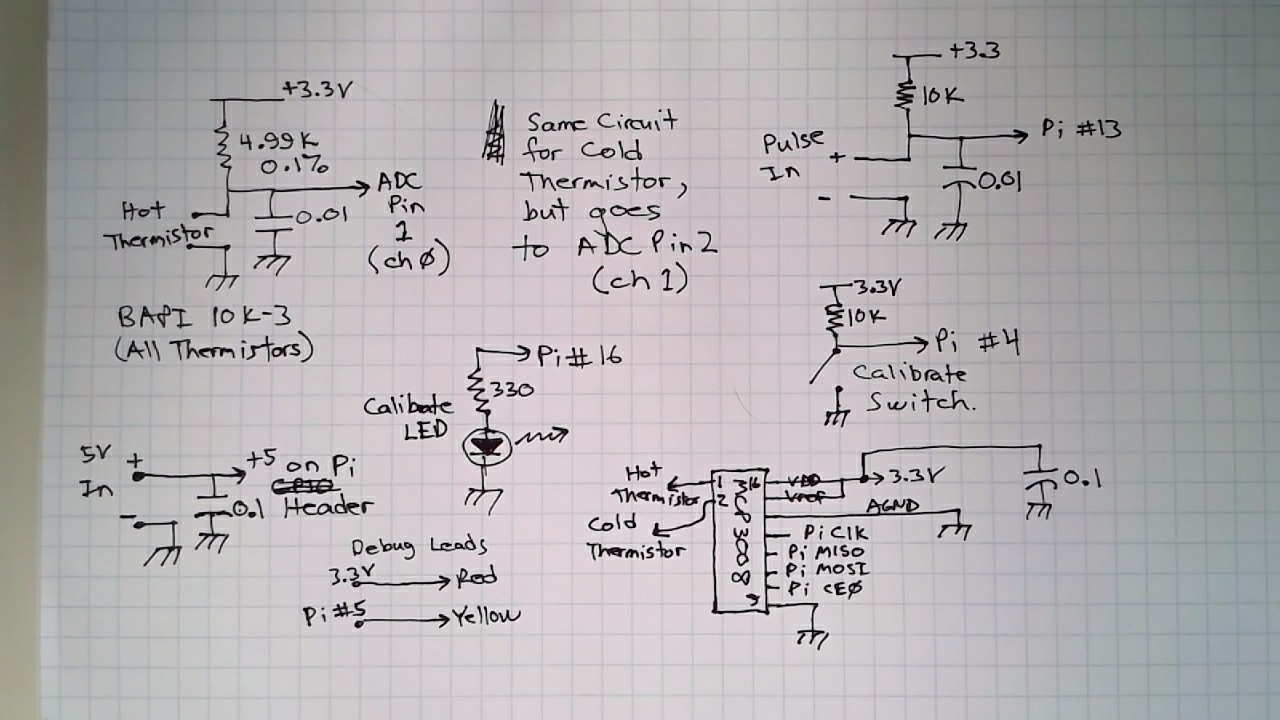 +3.3V
4.99K
0.1%
ADC
Pin
1
(ch 0)
0.01
Hot
Thermistor
BAPI 10K-3
(All Thermistors)
Same Circuit
for Cold
Thermistor,
but goes
to ADC Pin 2
(ch 1)
+3.3
10K
Pi #13
Pulse
In
+
-
0.01
3.3V
10K
Pi #4
Calibrate
Switch.
Pi #16
330
Calibrate
LED
5V
In
+
-
+5 on Pi
Header
0.1
Debug Leads
3.3V Red
Pi #5 Yellow
Hot
Thermistor
Cold
Thermistor
1
2
16
3008
VDD
Vref
3.3V
0.1
AGND
Pi Clk
Pi MISO
Pi MOSI
Pi CE0